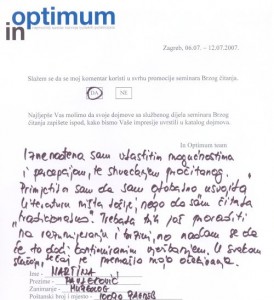 optimum
in
Zagreb, 06.07. – 12.07.2007.
Slažem se da se moj komentar koristi u svrhu promocije seminara Brzog čitanja.
DA NE
Najljepše Vas molimo da svoje dojmove sa službenog dijela seminara Brzog
čitanja zapišete ispod, kako bismo Vaše impresije uvrstili u katalog dojmova.
In Optimum team
Iznenađena sam vlastitim mogućnostima
i percepcijom, te shvaćanjem pročitanog.
Primjetila sam da sam globalno usvojila
literaturu nego da sam čitala
"tradicionalno". Trebala bih još poraditi
na razumijevanju i nadam se da
će to doći kontinuiranim vježbanjem. U svakom
slučaju, tečaj je premašio moja očekivanja.
Ime - MARTINA
Prezime - PAVLEKOVIĆ
Zanimanje -
Poštanski broj i mjesto - 10090 ZAGREB